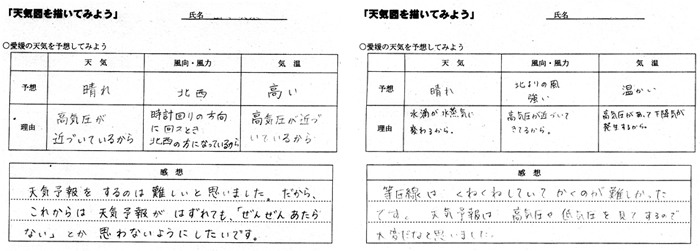 「天気図を描いてみよう」
氏名
○愛媛の天気を予想してみよう
天 気
風向・風力
気 温
予想
晴れ
北西
高い
理由
高気圧が
近づいているから
時計回りの方向
に回るとき
北西の方になっているから
高気圧が近づ
いているから
感 想
天気予報をするのは難しいと思いました。だから、
これからは天気予報がはずれても、「ぜんぜんあたら
ない」とか思わないようにしたいです。
「天気図を描いてみよう」
氏名
○愛媛の天気を予想してみよう
天 気
風向・風力
気 温
予想
晴れ
北よりの風
強い
温かい
理由
水滴が水蒸気に
変わるから。
高気圧が近づいて
きてるから。
高気圧があって下降気が
発生するから。
感 想
等圧線は くねくねしていて かくのが難しかった
です。 天気予報は 高気圧や低気圧を見てするので
大変だなと思いました。